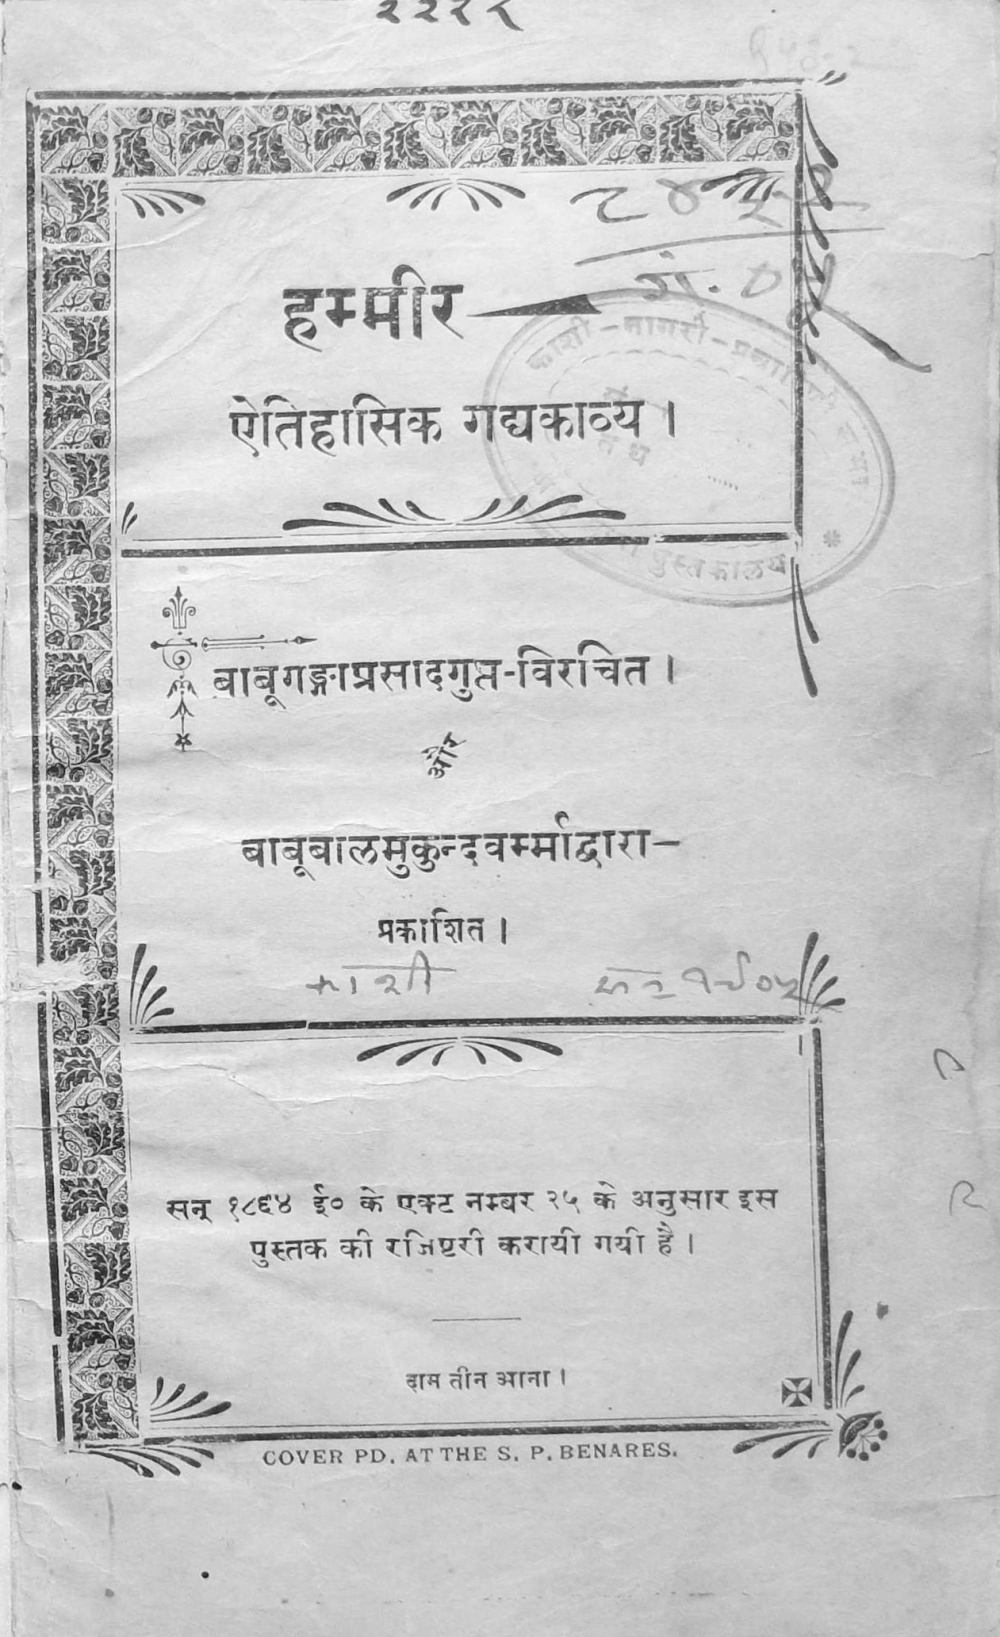 हम्मीर
ऐतिहासिक गद्यकाव्य ।
काशी-नागरी-
पुस्तकालय
बाबूगङ्गाप्रसादगुप्त-विरचित ।
और
बाबूबालमुकुन्दवर्म्माद्वारा—
प्रकाशित ।
काशी सन १९०५
सन् १८६४ ई० के एक्ट नम्बर २५ के अनुसार इस
पुस्तक की रजिष्टरी करायी गयी है ।
दाम तीन आना ।
COVER PD. AT THE S. P. BENARES.